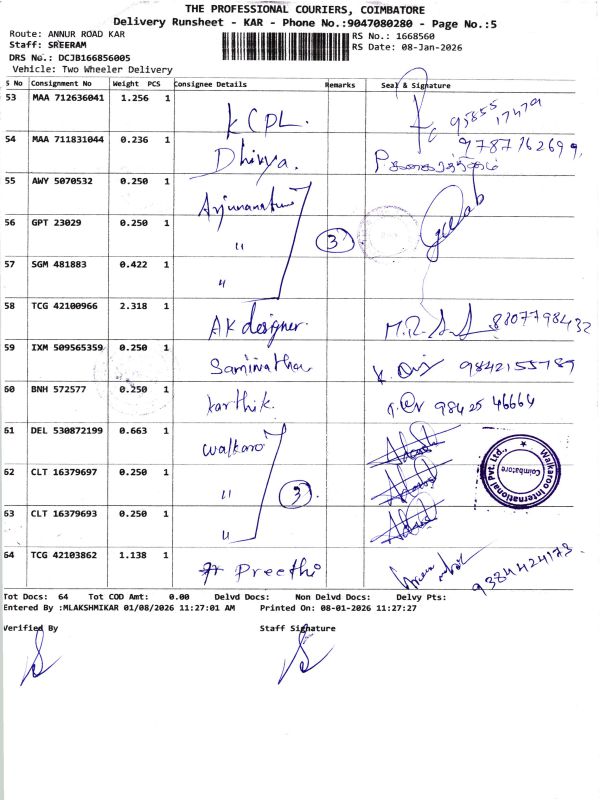 THE PROFESSIONAL COURIERS, COIMBATORE
Delivery Runsheet - KAR - Phone No.:9047080280 - Page No.:5
Route: ANNUR ROAD KAR
Staff: SREERAM
DRS No.: DCJB166856005
Vehicle: Two Wheeler Delivery
RS No.: 1668560
RS Date: 08-Jan-2026
S No Consignment No Weight PCS Consignee Details Remarks Seal & Signature
53 MAA 712636041 1.256 1 KCPL.
54 MAA 711831044 0.236 1 Dhivya.
55 AWY 5070532 0.250 1
56 GPT 23029 0.250 1 " 3
57 SGM 481883 0.422 1 "
58 TCG 42100966 2.318 1 AK designer. 8807798432
59 IXM 509565359 0.250 1 9842155789
60 BNH 572577 0.250 1 Karthik. 98425 46664
61 DEL 530872199 0.663 1 Walkaro
62 CLT 16379697 0.250 1 " 3
63 CLT 16379693 0.250 1 "
Walkaroo International Pvt. Ltd., Coimbatore
64 TCG 42103862 1.138 1 Preethi 9384424173
Tot Docs: 64 Tot COD Amt: 0.00 Delvd Docs: Non Delvd Docs: Delvy Pts:
Entered By :MLAKSHMIKAR 01/08/2026 11:27:01 AM Printed On: 08-01-2026 11:27:27
Verified By Staff Signature